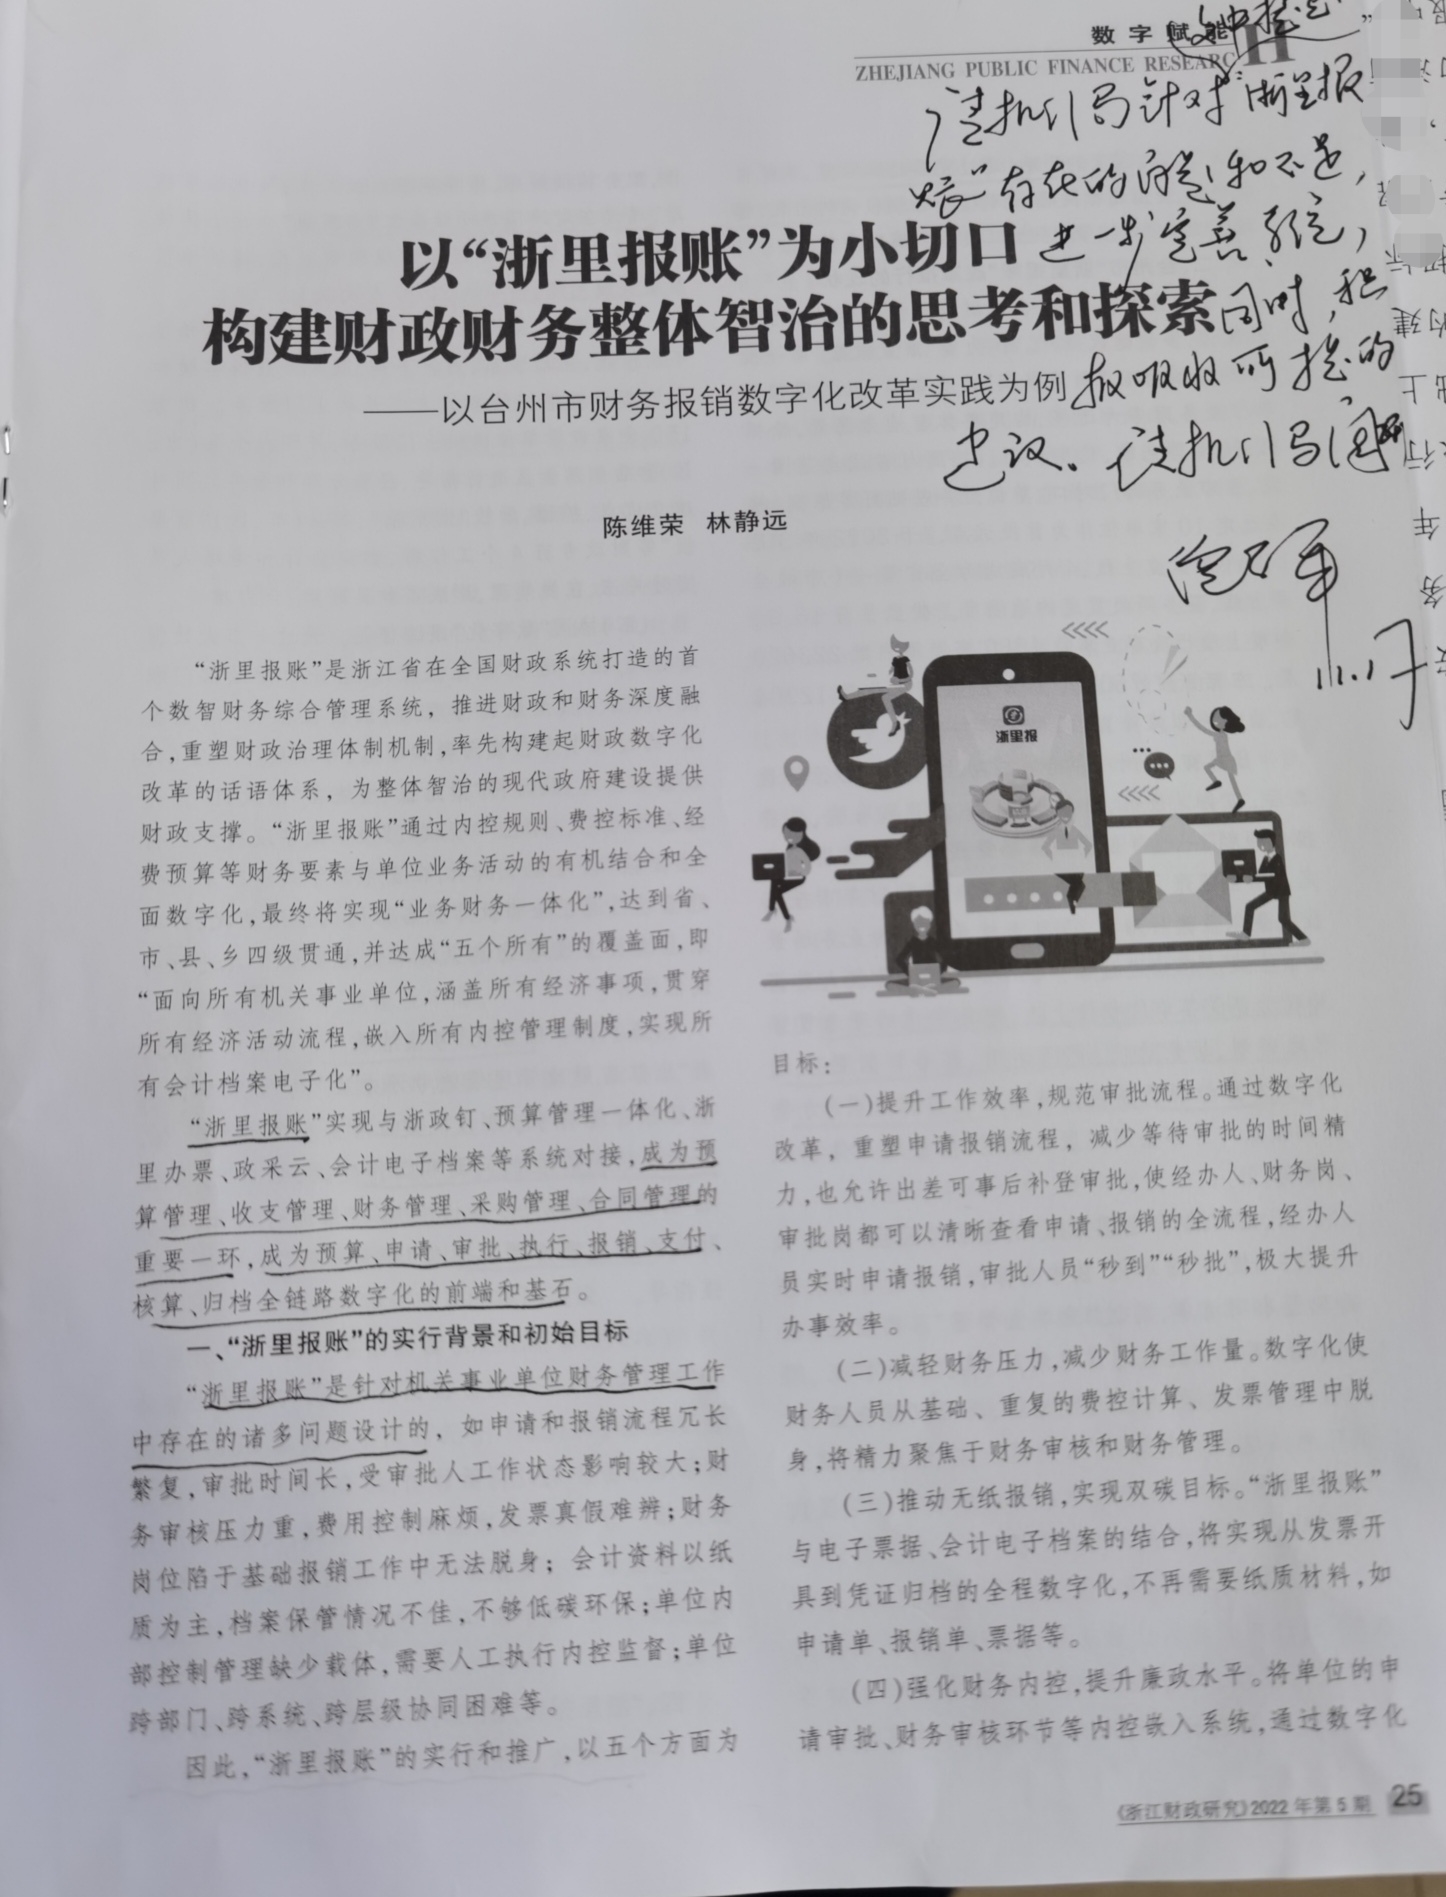 数字赋能
ZHEJIANG PUBLIC FINANCE RESEARCH
请机关局针对“浙里报
账”存在的问题和不足,
进一步完善系统,
同时,积
极吸收所提的
建议。请机关局阅
11.17
以“浙里报账”为小切口
构建财政财务整体智治的思考和探索
——以台州市财务报销数字化改革实践为例
陈维荣 林静远
“浙里报账”是浙江省在全国财政系统打造的首
个数智财务综合管理系统，推进财政和财务深度融
合，重塑财政治理体制机制，率先构建起财政数字化
改革的话语体系，为整体智治的现代政府建设提供
财政支撑。“浙里报账”通过内控规则、费控标准、经
费预算等财务要素与单位业务活动的有机结合和全
面数字化，最终将实现“业务财务一体化”，达到省、
市、县、乡四级贯通，并达成“五个所有”的覆盖面，即
“面向所有机关事业单位，涵盖所有经济事项，贯穿
所有经济活动流程，嵌入所有内控管理制度，实现所
有会计档案电子化”。
“浙里报账”实现与浙政钉、预算管理一体化、浙
里办票、政采云、会计电子档案等系统对接，成为预
算管理、收支管理、财务管理、采购管理、合同管理的
重要一环，成为预算、申请、审批、执行、报销、支付、
核算、归档全链路数字化的前端和基石。
一、“浙里报账”的实行背景和初始目标
“浙里报账”是针对机关事业单位财务管理工作
中存在的诸多问题设计的，如申请和报销流程冗长
繁复，审批时间长，受审批人工作状态影响较大；财
务审核压力重，费用控制麻烦，发票真假难辨；财务
岗位陷于基础报销工作中无法脱身；会计资料以纸
质为主，档案保管情况不佳，不够低碳环保；单位内
部控制管理缺少载体，需要人工执行内控监督；单位
跨部门、跨系统、跨层级协同困难等。
因此，“浙里报账”的实行和推广，以五个方面为
浙里报
目标：
（一）提升工作效率，规范审批流程。通过数字化
改革，重塑申请报销流程，减少等待审批的时间精
力，也允许出差可事后补登审批，使经办人、财务岗、
审批岗都可以清晰查看申请、报销的全流程，经办人
员实时申请报销，审批人员“秒到”“秒批”，极大提升
办事效率。
（二）减轻财务压力，减少财务工作量。数字化使
财务人员从基础、重复的费控计算、发票管理中脱
身，将精力聚焦于财务审核和财务管理。
（三）推动无纸报销，实现双碳目标。“浙里报账”
与电子票据、会计电子档案的结合，将实现从发票开
具到凭证归档的全程数字化，不再需要纸质材料，如
申请单、报销单、票据等。
（四）强化财务内控，提升廉政水平。将单位的申
请审批、财务审核环节等内控嵌入系统，通过数字化
《浙江财政研究》2022年第5期 25